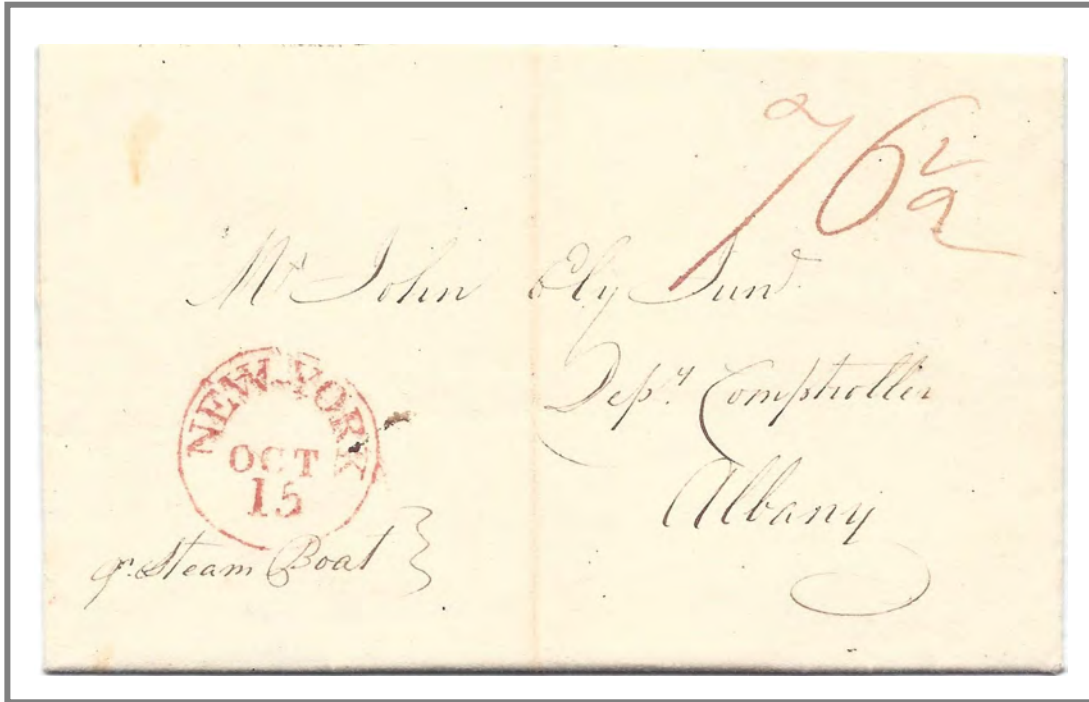 76½
Mr John Ely Junr
Depy Comptroller
Albany
NEW-YORK
OCT
15
pr. Steam Boat